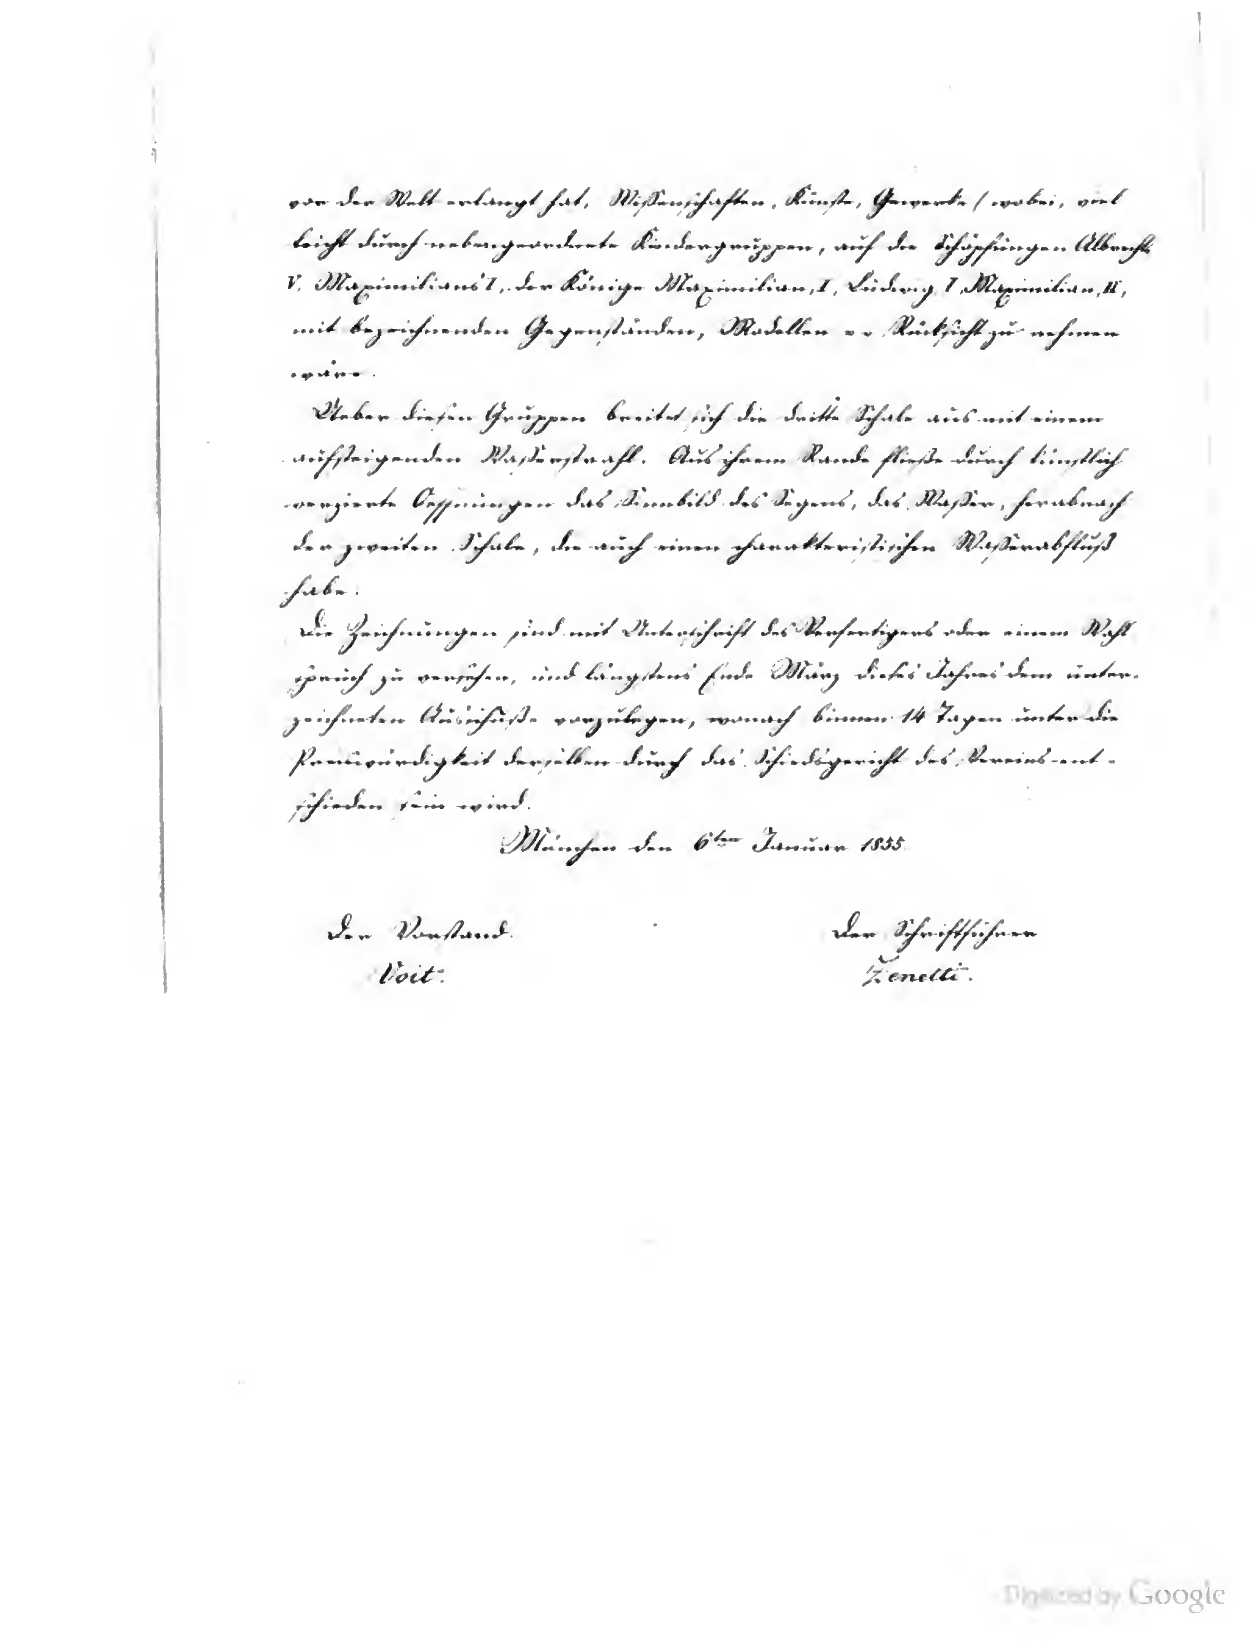 vor der Welt erlangt hat, Wissenschaften, Künste, Gewerke (wobei, viel
leicht durch nebengeordnete Kindergruppen, auf die Schöpfungen Albrechts
V, Maximilians I, der Könige Maximilian, I, Ludwig I, Maximilian, II,
mit bezeichnenden Gegenständen, Modellen Rücksicht zu nehmen
wäre.
Ueber diesen Gruppen breitet sich die dritte Schale aus mit einem
aufsteigenden Waßerstrahl. Aus ihrem Rande fließe durch künstlich
verzierte Oeffnungen das Sinnbild des Segens, das Waßer, herab nach
der zweiten Schale, die auch einen charakteristischen Waßerabfluß
habe.
Die Zeichnungen sind mit Unterschrift des Verfertigers oder einem Wahl
spruch zu versehen, und längstens Ende März dieses Jahres dem unter-
zeichneten Ausschuße vorzulegen, wonach binnen 14 Tagen unter die
Preiswürdigkeit derselben durch das Schiedsgericht des Vereins ent-
schieden sein wird.
München den 6ten Januar 1855
Der Vorstand.
Voit.
Der Schriftführer
Zenetti.
Digitized by Google